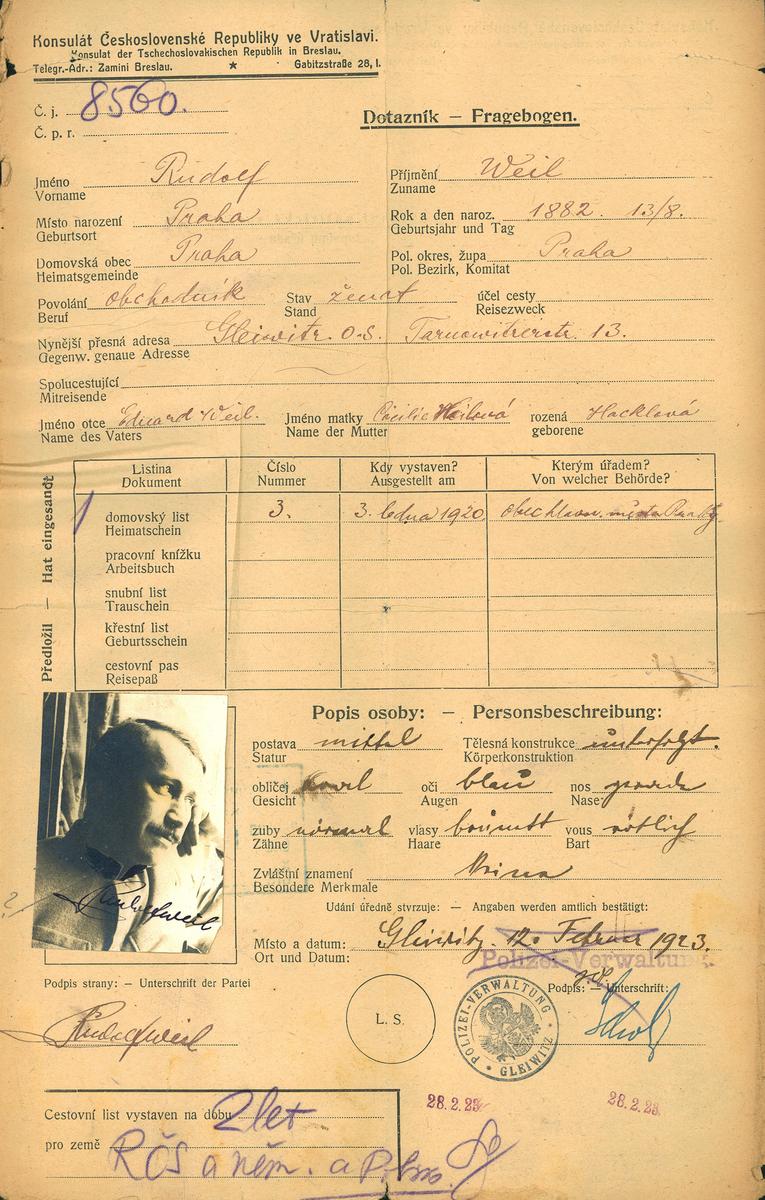 Konsulát Československé Republiky ve Vratislavi.
Konsulat der Tschechoslovakischen Republik in Breslau.
Telegr.-Adr.: Zamini Breslau. * Gabitzstraße 28, I.
Č. j. 8560.
Č. p. r.
Dotazník – Fragebogen.
Jméno Rudolf Příjmění Weil
Vorname Zuname
Místo narození Praha Rok a den naroz. 1882. 13/8.
Geburtsort Geburtsjahr und Tag
Domovská obec Praha Pol. okres, župa Praha
Heimatsgemeinde Pol. Bezirk, Komitat
Povolání obchodník Stav ženat účel cesty
Beruf Stand Reisezweck
Nynější přesná adresa Gleiwitz O-S. Tarnowitzerstr. 13.
Gegenw. genaue Adresse
Spolucestující
Mitreisende
Jméno otce Eduard Weil. Jméno matky Cecilie Weilová rozená Hacklová
Name des Vaters Name der Mutter geborene
Předložil — Hat eingesandt
Listina Číslo Kdy vystaven? Kterým úřadem?
Dokument Nummer Ausgestellt am Von welcher Behörde?
domovský list 3. 3. ledna 1920 obec hlavn. města Prahy
Heimatschein
pracovní knížku
Arbeitsbuch
snubní list
Trauschein
křestní list
Geburtsschein
cestovní pas
Reisepaß
Popis osoby: — Personsbeschreibung:
postava mittel Tělesná konstrukce
Statur Körperkonstruktion
obličej oval oči blau nos gerade
Gesicht Augen Nase
zuby normal vlasy vous rötlich
Zähne Haare Bart
Zvláštní znamení
Besondere Merkmale
Rudolf Weil
Udání úředně stvrzuje: — Angaben werden amtlich bestätigt:
Místo a datum: Gleiwitz. 12. Februar 1923.
Ort und Datum:
Polizei-Verwaltung.
Podpis strany: — Unterschrift der Partei
Podpis: — Unterschrift:
Rudolf Weil
L. S.
POLIZEI-VERWALTUNG
* GLEIWITZ *
28.2.23 28.2.23.
Cestovní list vystaven na dobu 2 let
pro země RČS a něm. a